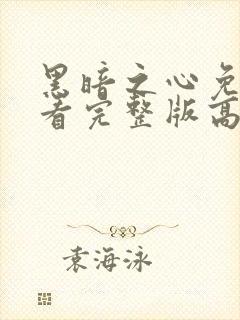 黑暗之心免
看完整版高
袁海泳